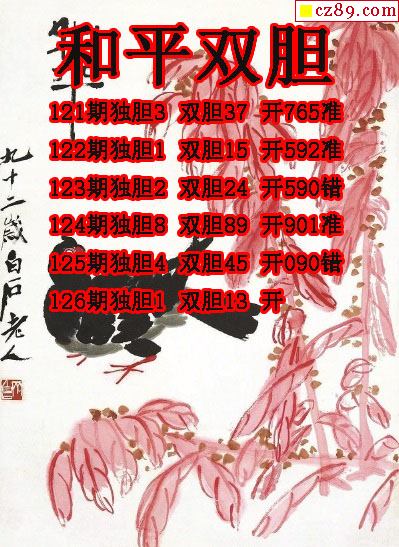 cz89.com
和平双胆
121期独胆3 双胆37 开765准
122期独胆1 双胆15 开592准
123期独胆2 双胆24 开590错
124期独胆8 双胆89 开901准
125期独胆4 双胆45 开090错
126期独胆1 双胆13 开
九十二岁白石老人